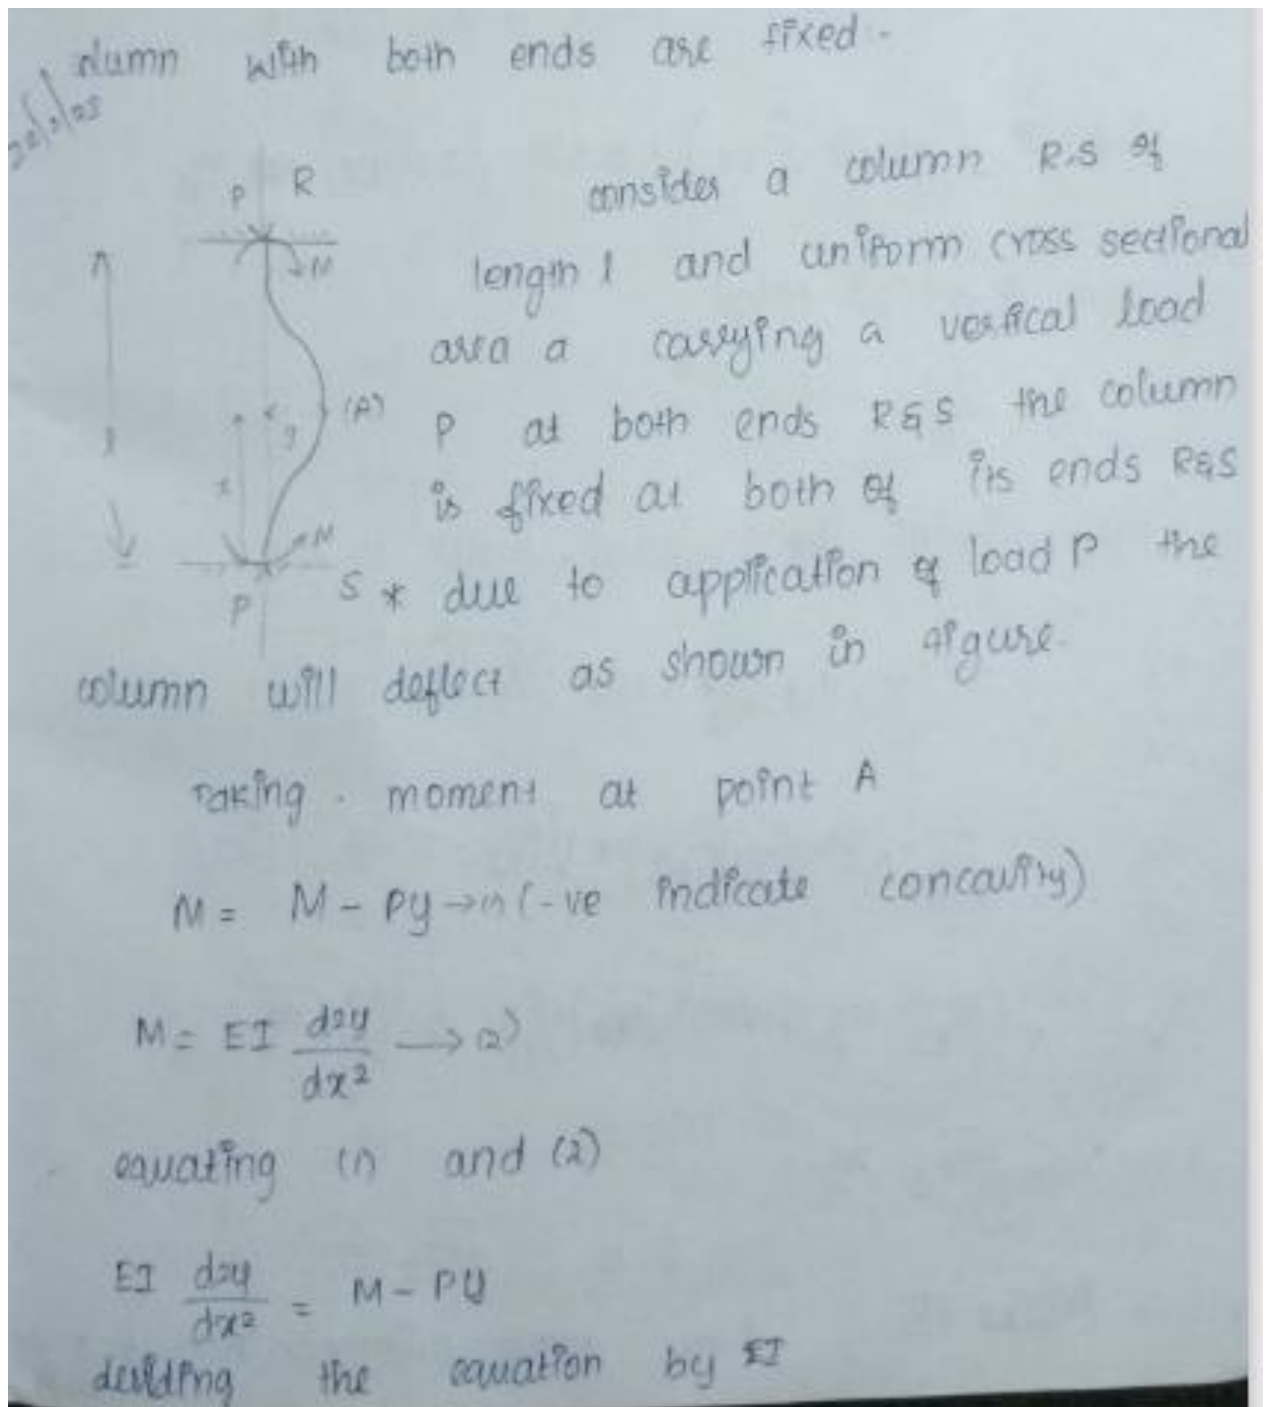 olumn with both ends are fixed.
P R
consider a column R.S of
M
length l and uniform cross sectional
area a carrying a vertical load
(A)
y
l
P at both ends R & S the column
x
is fixed at both of its ends R&S
M
S * due to application of load P the
P
column will deflect as shown in figure.
Taking moment at point A
M = M - Py → (1) (-ve indicate concavity)
M = EI d2y/dx2 → (2)
equating (1) and (2)
EI d2y/dx2 = M - PY
deviding the equation by EI